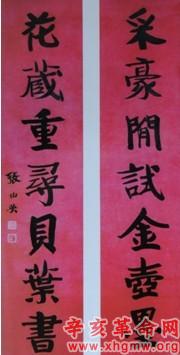 采豪閒試金壺墨
花蔵重尋貝葉書
張山㠭
辛亥革命网
www.xhgmw.org